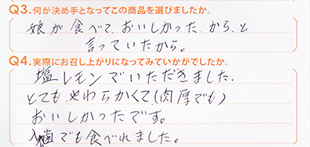 Q3.何が決め手となってこの商品を選びましたか。
娘が食べて、おいしかったから、と
言っていたから。
Q4.実際にお召し上がりになってみていかがでしたか。
塩レモンでいただきました。
とてもやわらかくて(肉厚でも)
おいしかったです。
でも食べれました。